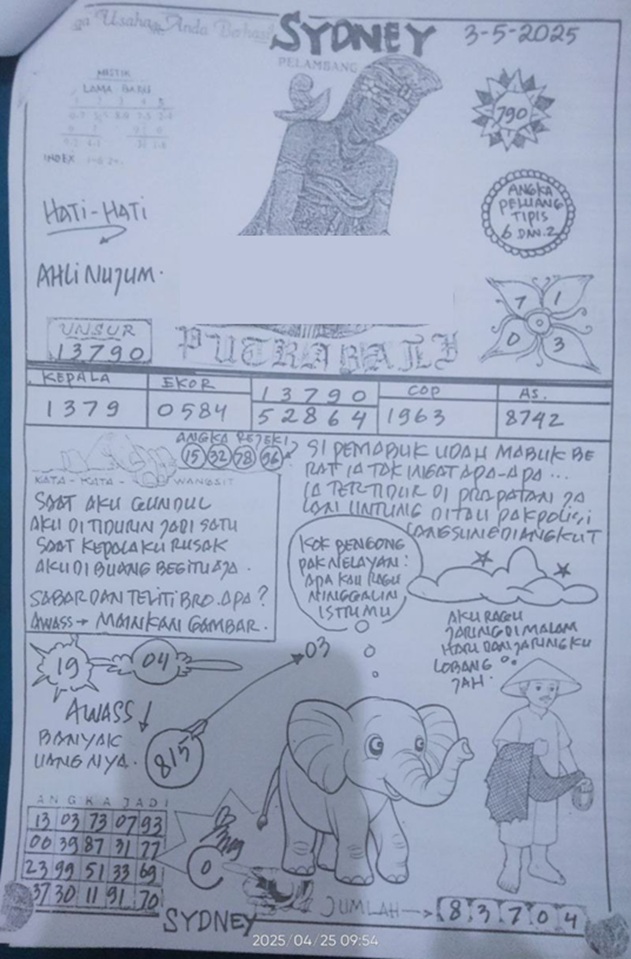 Usaha Anda Berhasil
SYDNEY
3-5-2025
PELAMBANG
MISTIK
LAMA BARU
INDEX
790
HATI-HATI
ANGKA
PELUANG
TIPIS
6 DAN 2
AHLI NUJUM.
7 1
0 3
UNSUR
13790
PUTRA BALI
KEPALA EKOR 13790 COP AS.
1379 0584 52864 1963 8742
ANGKA REJEKI?
15 32 78 96
KATA-KATA WANGSIT
SAAT AKU GUNDUL
AKU DI TIDURIN JADI SATU
SAAT KEPALAKU RUSAK
AKU DI BUANG BEGITU AJA.
SABAR DAN TELITI BRO. APA?
AWASS → MAINKAN GAMBAR.
SI PEMABUK UDAH MABUK BE
RAT IA TAK INGAT APA-APA...
IA TERTIDUR DI PRAPATAN JA
LAN UNTUNG DITAU PAK POLISI
LANGSUNG DIANGKUT
KOK BENGONG
PAK NELAYAN:
APA KAU RAGU
NINGGALIN
ISTRIMU
AKU RAGU
JARING DI MALAM
HARI DAN JARINGKU
LOBANG
JAH.
19 04
03
AWASS
BANYAK
UANGNYA.
815
ANGKA JADI
13 03 73 07 93
00 39 87 31 77
23 99 51 33 69
37 30 11 91 70
0
JUMLAH → 8 3 7 0 4
SYDNEY
2025/04/25 09:54